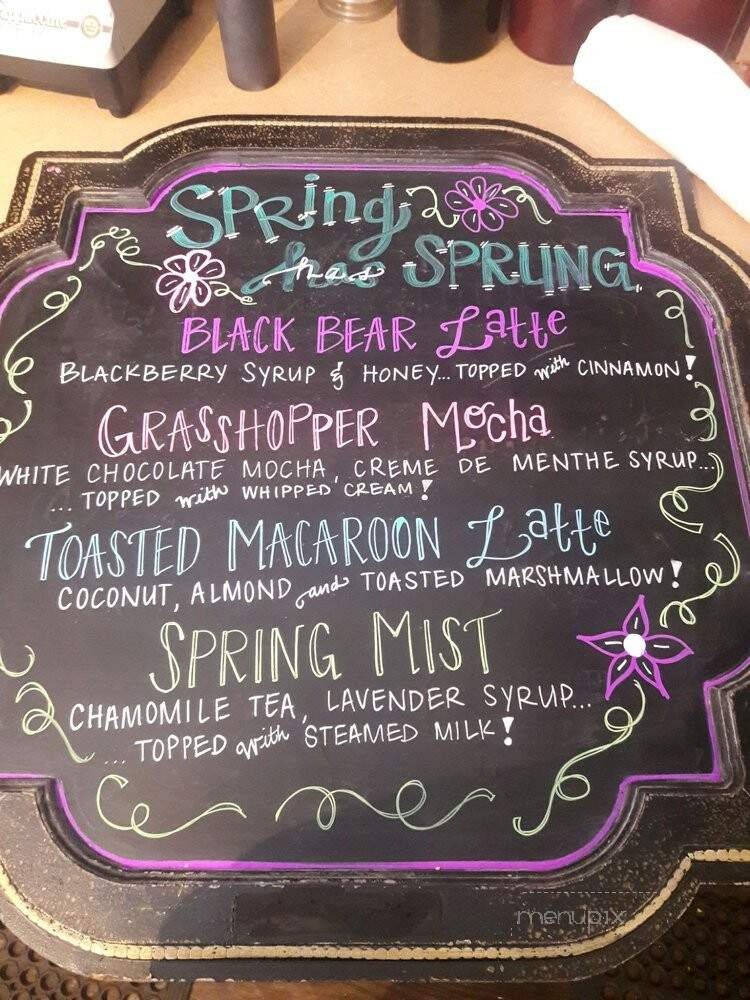 SPRing
has SPRUNG
BLACK BEAR Latte
BLACKBERRY SYRUP & HONEY... TOPPED with CINNAMON!
GRASSHOPPER Mocha
WHITE CHOCOLATE MOCHA, CREME DE MENTHE SYRUP...
... TOPPED with WHIPPED CREAM!
TOASTED MACAROON Latte
COCONUT, ALMOND and TOASTED MARSHMALLOW!
SPRING MIST
CHAMOMILE TEA, LAVENDER SYRUP...
... TOPPED with STEAMED MILK!
menupix